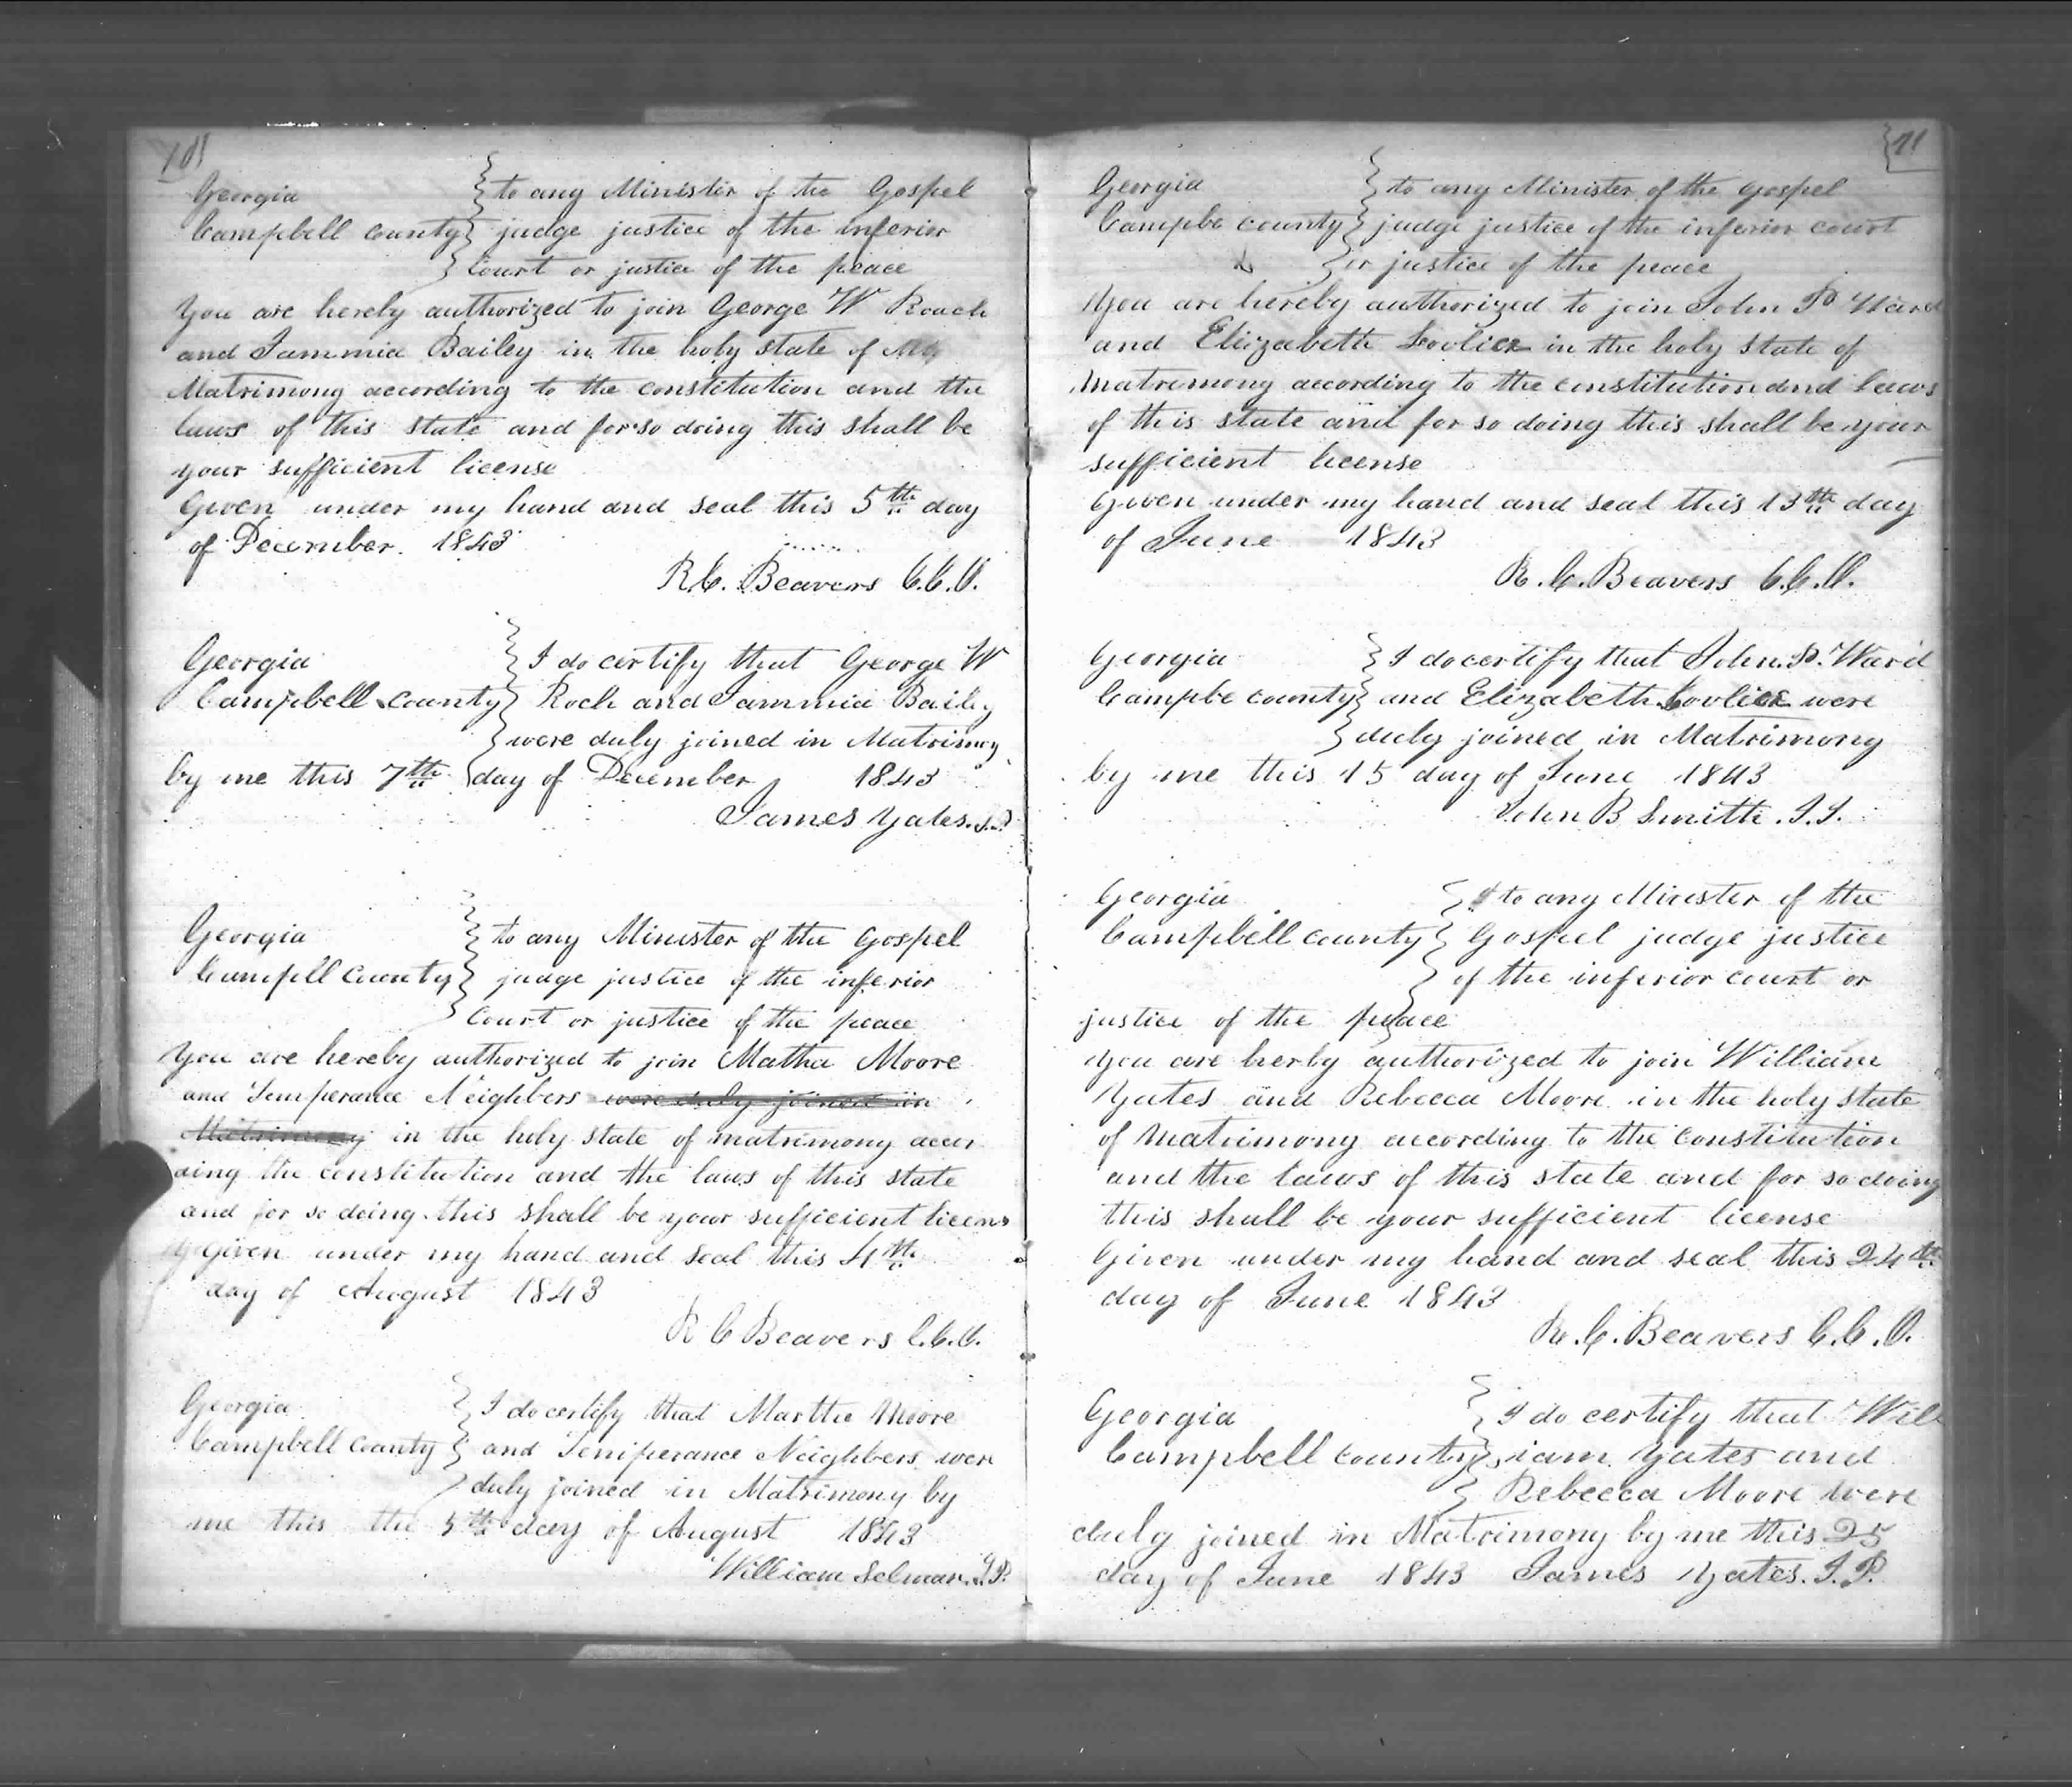 Georgia to any Minister of the Gospel
Campbell County judge justice of the inferior
Court or justice of the peace
You are hereby authorized to join George W Roach
and Tammia Bailey in the holy state of
Matrimony according to the constitution and the
laws of this state and for so doing this shall be
your sufficient license
Given under my hand and seal this 5th day
of December 1843
R.C. Beavers C.C.O.
Georgia I do certify that George W
Campbell County Roch and Tammia Baily
were duly joined in Matrimony
by me this 7th day of December 1843
James Yates. J.P.
Georgia to any Minister of the Gospel
Campell County judge justice of the inferior
Court or justice of the peace
You are hereby authorized to join Matha Moore
and Temperance Neighbers were duly joined in
Matrimony in the holy state of matrimony accor
ding the constitution and the laws of this state
and for so doing this shall be your sufficient licens
Given under my hand and seal this 4th
day of August 1843
R C Beavers C.C.O.
Georgia I do certify that Martha Moore
Campbell County and Temperance Neighbers were
duly joined in Matrimony by
me this the 5th day of August 1843
William Selman. J.P.
71
Georgia to any Minister of the Gospel
Campbe County judge justice of the inferior court
or justice of the peace
You are hereby authorized to join John P Ward
and Elizabeth in the holy state of
Matrimony according to the constitution and laws
of this state and for so doing this shall be your
sufficient license
Given under my hand and seal this 13th day
of June 1843
R. C. Beavers C.C.O.
Georgia I do certify that John P. Ward
Campbe County and Elizabeth were
duly joined in Matrimony
by me this 15 day of June 1843
John B Smith. J.J.
Georgia to any Minister of the
Campbell County Gospel judge justice
of the inferior court or
justice of the peace
You are herby authorized to join William
Yates and Rebecca Moore in the holy state
of Matrimony according to the Constitution
and the laws of this state and for so doing
this shall be your sufficient license
Given under my hand and seal this 24th
day of June 1843
R. C. Beavers C.C.O.
Georgia I do certify that Will
Campbell County iam Yates and
Rebecca Moore were
duly joined in Matrimony by me this 25
day of June 1843 James Yates. J.P.